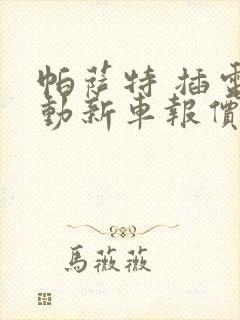 帕薩特 插電
動新車報價
馬薇薇